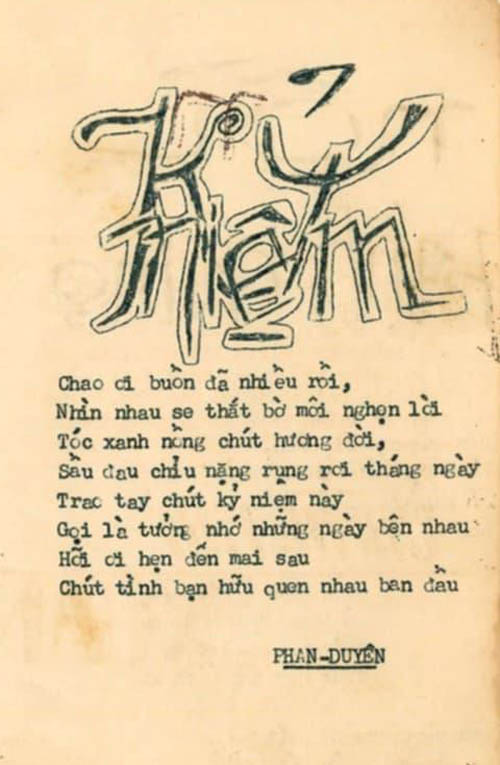 Kỷ
niệm
Chao ơi buồn đã nhiều rồi,
Nhìn nhau se thắt bờ môi nghẹn lời
Tóc xanh nồng chút hương đời,
Sầu đau chĩu nặng rụng rơi tháng ngày
Trao tay chút kỷ niệm này
Gọi là tưởng nhớ những ngày bên nhau
Hỡi ơi hẹn đến mai sau
Chút tình bạn hữu quen nhau ban đầu
PHAN-DUYÊN